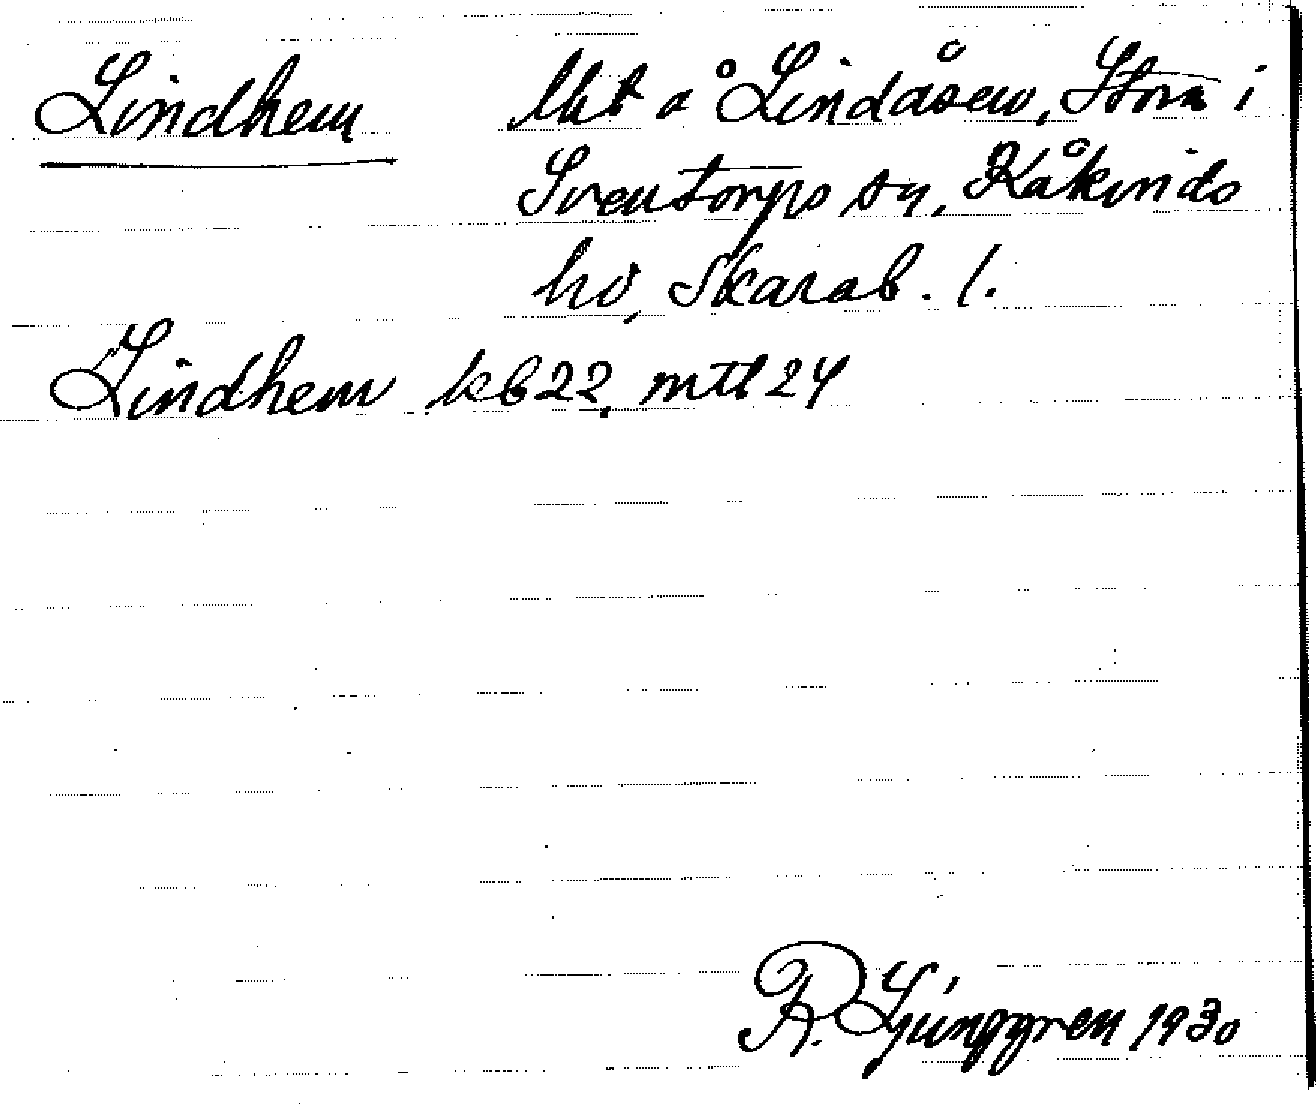 Lindhem lht å Lindåsen, Stora i
Sventorps sn, Kåkinds
hd, Skarab. l.
Lindhem kb22, mtl 24
R. Ljunggren 1930